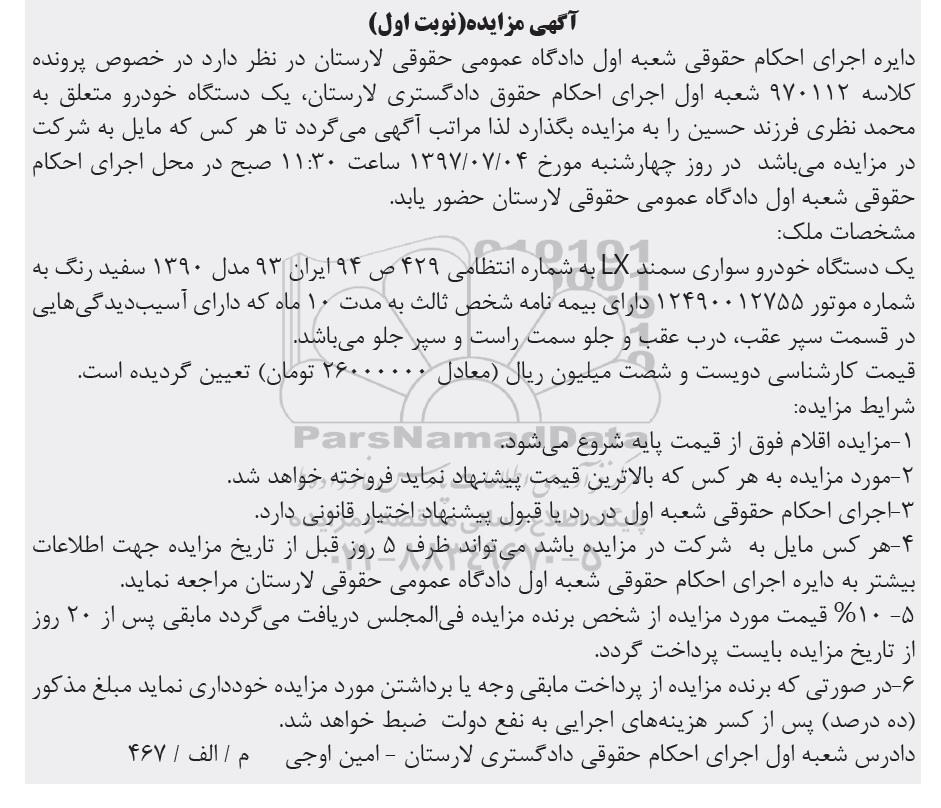 آگهی مزایده(نوبت اول)
دایره اجرای احکام حقوقی شعبه اول دادگاه عمومی حقوقی لارستان در نظر دارد در خصوص پرونده
کلاسه ۹۷۰۱۱۲ شعبه اول اجرای احکام حقوق دادگستری لارستان، یک دستگاه خودرو متعلق به
محمد نظری فرزند حسین را به مزایده بگذارد لذا مراتب آگهی می‌گردد تا هر کس که مایل به شرکت
در مزایده می‌باشد در روز چهارشنبه مورخ ۱۳۹۷/۰۷/۰۴ ساعت ۱۱:۳۰ صبح در محل اجرای احکام
حقوقی شعبه اول دادگاه عمومی حقوقی لارستان حضور یابد.
مشخصات ملک:
یک دستگاه خودرو سواری سمند LX به شماره انتظامی ۴۲۹ ص ۹۴ ایران ۹۳ مدل ۱۳۹۰ سفید رنگ به
شماره موتور ۱۲۴۹۰۰۱۲۷۵۵ دارای بیمه نامه شخص ثالث به مدت ۱۰ ماه که دارای آسیب‌دیدگی‌هایی
در قسمت سپر عقب، درب عقب و جلو سمت راست و سپر جلو می‌باشد.
قیمت کارشناسی دویست و شصت میلیون ریال (معادل ۲۶۰۰۰۰۰۰ تومان) تعیین گردیده است.
شرایط مزایده:
۱-مزایده اقلام فوق از قیمت پایه شروع می‌شود.
ParsNamadData
۲-مورد مزایده به هر کس که بالاترین قیمت پیشنهاد نماید فروخته خواهد شد.
۳-اجرای احکام حقوقی شعبه اول در رد یا قبول پیشنهاد اختیار قانونی دارد.
پایگاه اطلاع رسانی مناقصه و مزایده
۴-هر کس مایل به شرکت در مزایده باشد می‌تواند ظرف ۵ روز قبل از تاریخ مزایده جهت اطلاعات
۰۲۱-۸۸۳۴۹۶۷۰-۵
بیشتر به دایره اجرای احکام حقوقی شعبه اول دادگاه عمومی حقوقی لارستان مراجعه نماید.
۵- ۱۰% قیمت مورد مزایده از شخص برنده مزایده فی‌المجلس دریافت می‌گردد مابقی پس از ۲۰ روز
از تاریخ مزایده بایست پرداخت گردد.
۶-در صورتی که برنده مزایده از پرداخت مابقی وجه یا برداشتن مورد مزایده خودداری نماید مبلغ مذکور
(ده درصد) پس از کسر هزینه‌های اجرایی به نفع دولت ضبط خواهد شد.
دادرس شعبه اول اجرای احکام حقوقی دادگستری لارستان - امین اوجی م / الف / ۴۶۷